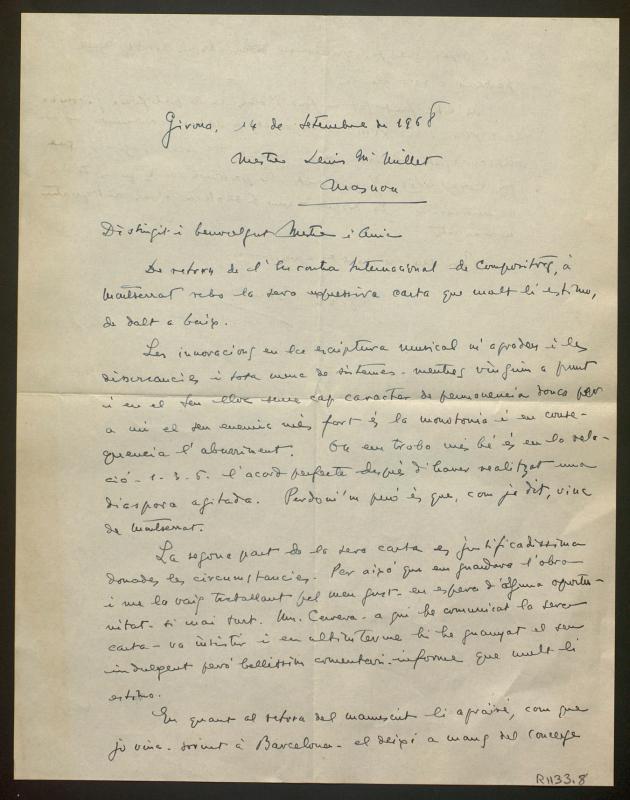 Girona, 14 de setembre de 1968
Mestre Lluis Mª Millet
Masnou
Distingit i benvolgut Mestre i Amic
De retorn de l'Encontre Internacional de Compositors, à
Montserrat rebo la seva expressiva carta que molt li estimo,
de dalt a baix.
Les innovacions en la escriptura musical m'agraden i les
disonancies i tota mena de sistemes - mentres vinguin a punt
i en el seu lloc sense cap caracter de permanencia doncs per
a mi el seu enemic més fort és la monotonia i en conse-
quencia l'aburriment. On em trobo més bé és en la rela-
ció - 1-3-5. l'acord perfecte després d'haver realitzat una
diaspora agitada. Perdoni'm però és que, com ja dit, vinc
de Montserrat.
La segona part de la seva carta es justificadissima
donades les circumstancies. Per aixó que em guardava l'obra
i me la vaig treballant pel meu gust - en espera d'alguna oportu-
nitat - si mai surt. Mn. Cervera - a qui he comunicat la seva
carta - va insistir i en altim terme hi he guanyat el seu
indulgent però bellissim comentari-informe que molt li
estimo.
En quant al retorn del manuscrit li apreïré, com que
jo vinc - sovint à Barcelona - el deixi a mans del conserge
R.1133.8